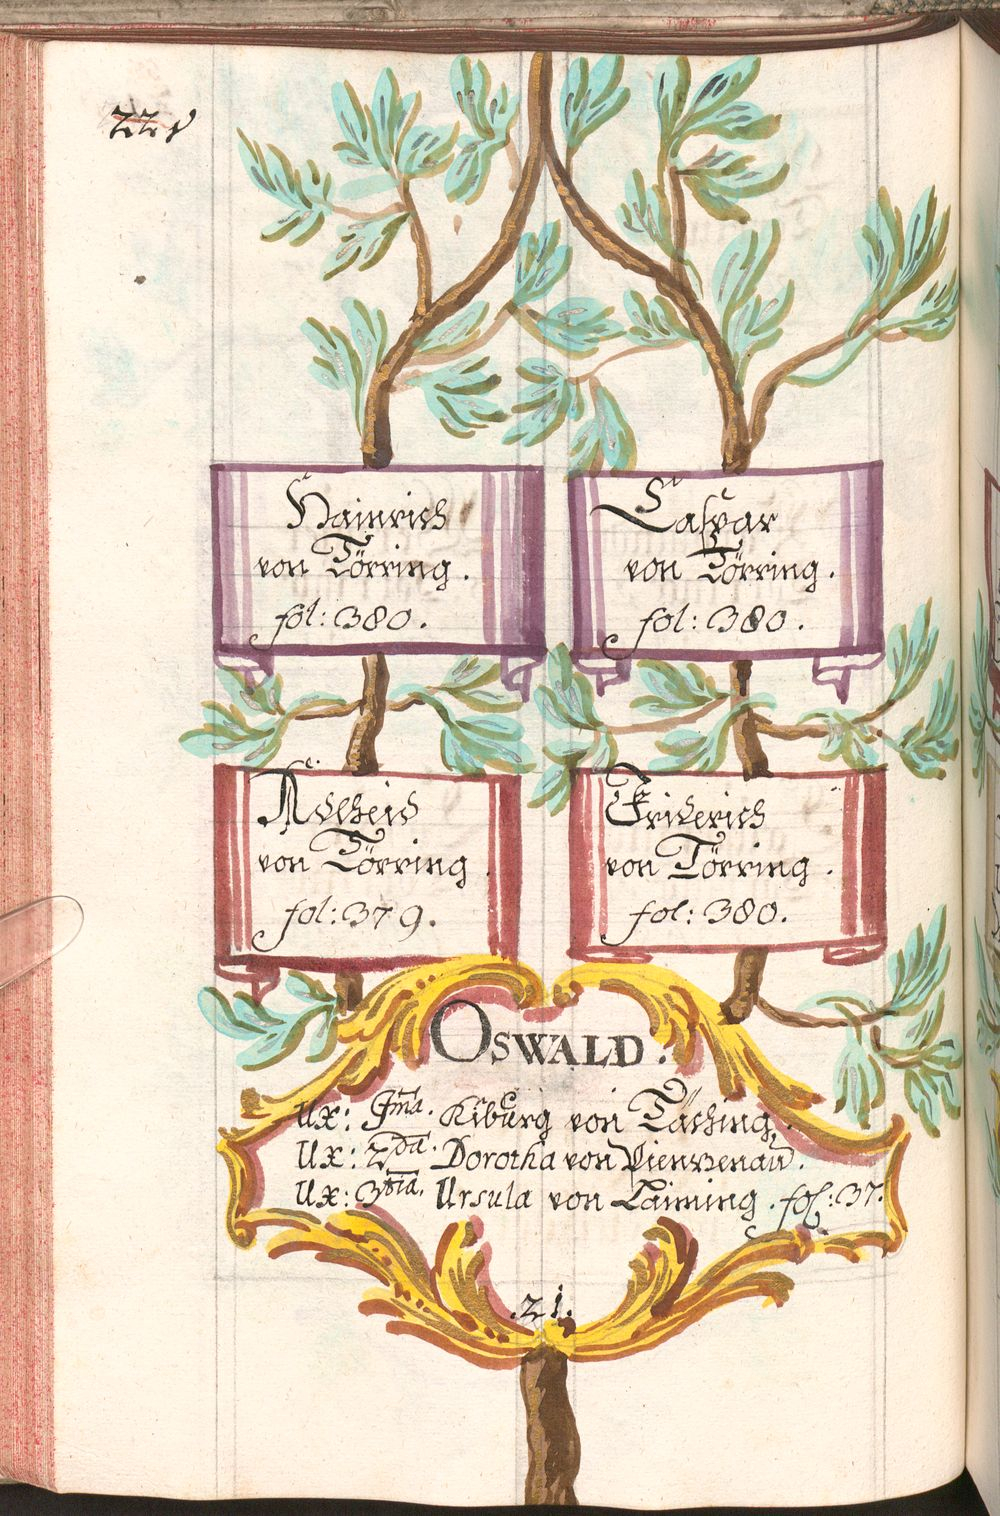 Hainrich
von Törring.
fol: 380.
Caspar
von Törring.
fol: 380.
Adelheid
von Törring.
fol: 379.
Friderich
von Törring.
fol: 380.
OSWALD.
Ux: 1ma. Kiburg von
Ux: 2da. Dorothea von Pienzenau.
Ux: 3tia. Ursula von Taiming. fol: 37.
.21.